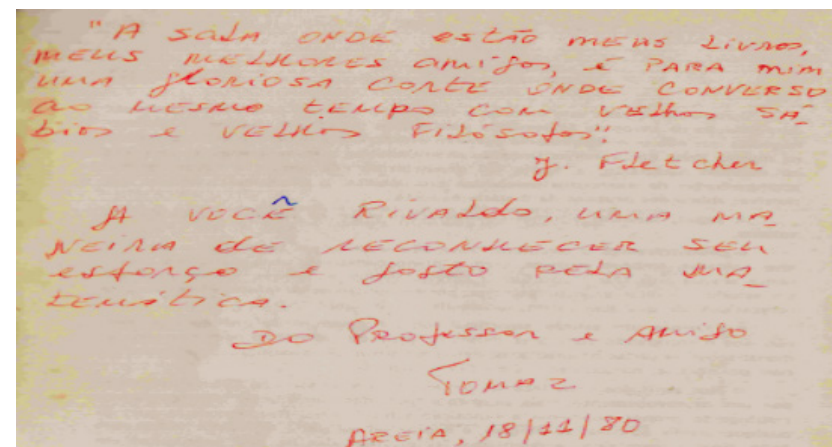 "A sala onde estão meus livros,
meus melhores amigos, é para mim
uma gloriosa corte onde converso
ao mesmo tempo com velhos sá_
bios e velhos filósofos".
J. Fletcher
A você Rivaldo, uma ma_
neira de reconhecer seu
esforço e gosto pela ma_
temática.
Do Professor e amigo
Tomaz
Areia, 18/11/80